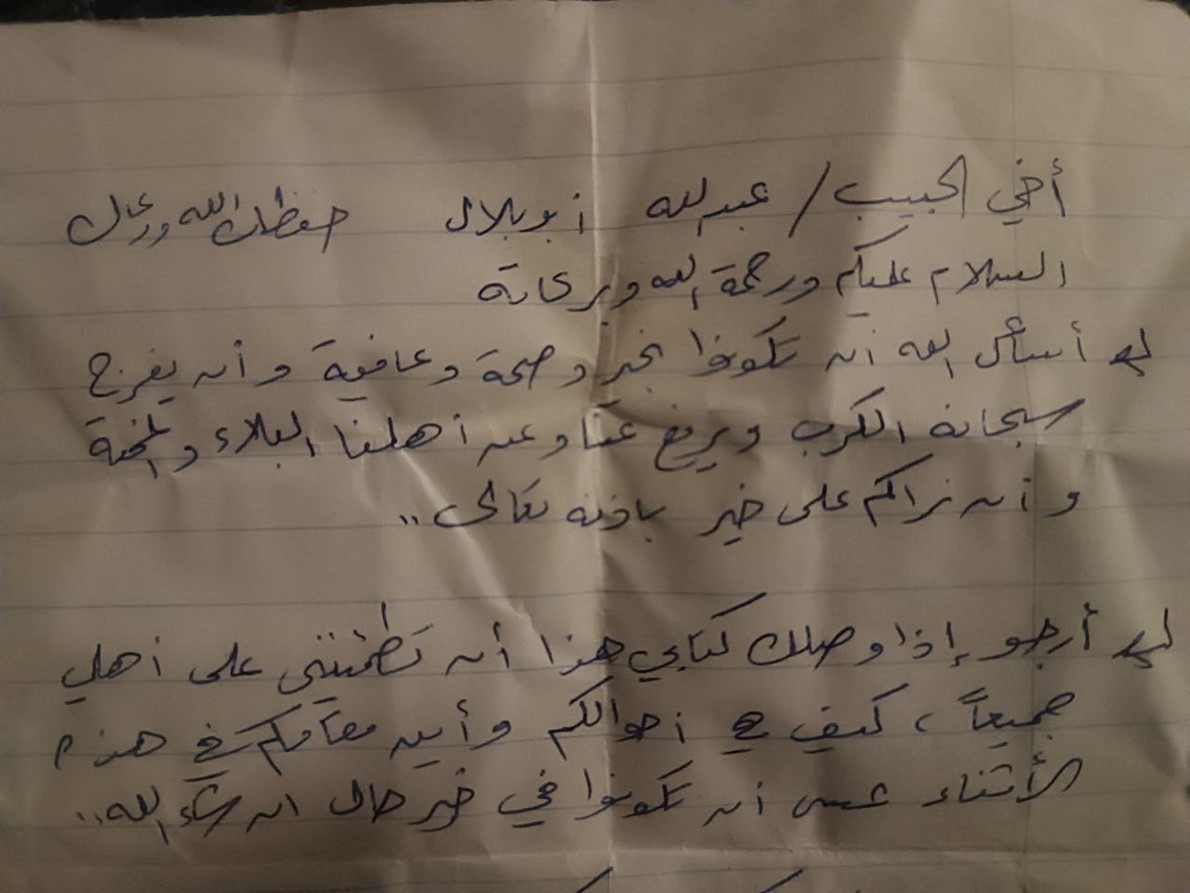 أخي الحبيب / عبدالله أبو بلال حفظك الله ورعاك
السلام عليكم ورحمة الله وبركاتة
أسأل الله أن تكونوا بخير وصحة وعافية وأن يفرج
سبحانه الكرب ويرفع عنا وعن أهلنا البلاء والمحنة
وأن نراكم على خير بإذنه تعالى ..
أرجو إذا وصلك كتابي هذا أن تطمئنني على أهلي
جميعاً ، كيف هي أحوالكم وأين مقامكم في هذه
الأثناء عسى أن تكونوا في خير حال ان شاء الله ..